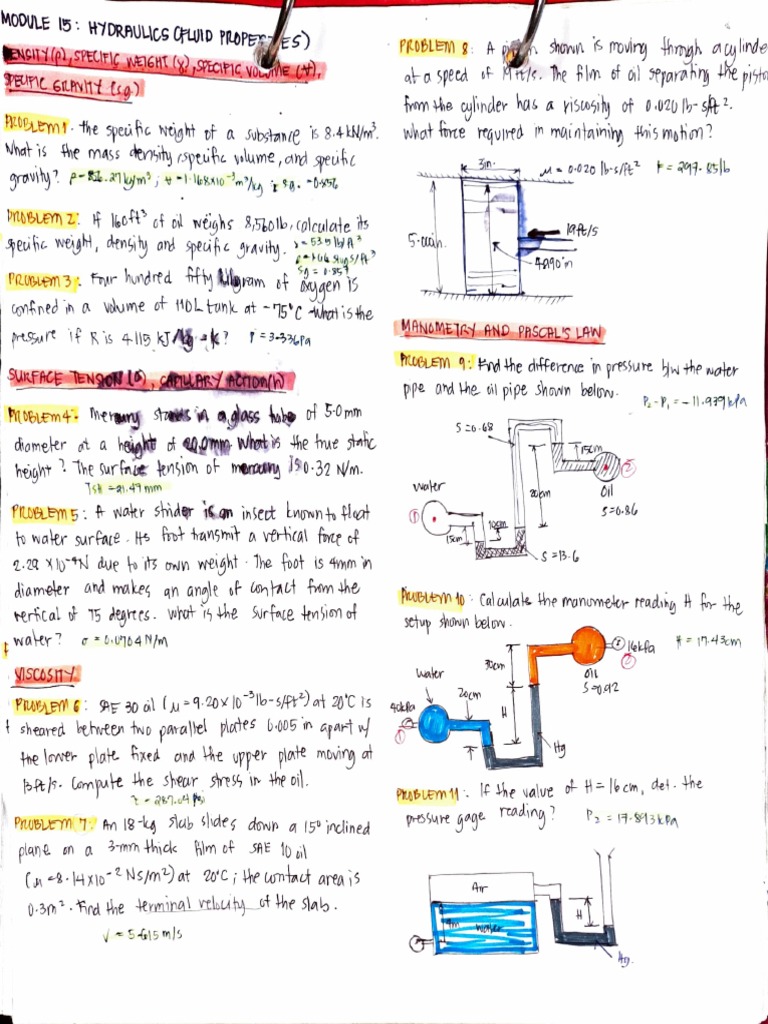 MODULE 15: HYDRAULICS (FLUID PROPERTIES)
DENSITY(ρ), SPECIFIC WEIGHT (γ), SPECIFIC VOLUME (V),
SPECIFIC GRAVITY (s.g.)
PROBLEM 1. the specific weight of a substance is 8.4 kN/m³.
What is the mass density, specific volume, and specific
gravity? ρ = 856.27 kg/m³; V = 1.168x10⁻³ m³/kg ; s.g. = 0.856
PROBLEM 2: If 160ft³ of oil weighs 8,560 lb, calculate its
specific weight, density and specific gravity. γ = 53.5 lb/ft³
ρ = 1.66 slugs/ft³
sg = 0.857
PROBLEM 3: Four hundred fifty kilogram of oxygen is
confined in a volume of 110L tank at -75°C. What is the
pressure if R is 4.115 kJ/kg-K? P = 3.33GPa
SURFACE TENSION (σ), CAPILLARY ACTION(h)
PROBLEM 4: Mercury stands in a glass tube of 5.0mm
diameter at a height of 20.0mm. What is the true static
height? The surface tension of mercury is 0.32 N/m.
TSH = 21.47 mm
PROBLEM 5: A water strider is an insect known to float
to water surface. Its foot transmit a vertical force of
2.29 x10⁻⁴N due to its own weight. The foot is 4mm in
diameter and makes an angle of contact from the
vertical of 75 degrees. What is the surface tension of
water? σ = 0.0704 N/m
VISCOSITY
PROBLEM 6: SAE 30 oil (μ = 9.20x10⁻³ lb-s/ft²) at 20°C is
sheared between two parallel plates 0.005 in apart w/
the lower plate fixed and the upper plate moving at
13ft/s. Compute the shear stress in the oil.
τ = 287.04 psi
PROBLEM 7: An 18-kg slab slides down a 15° inclined
plane on a 3-mm thick film of SAE 10 oil
(μ = 8.14x10⁻² Ns/m²) at 20°C; the contact area is
0.3m². Find the terminal velocity of the slab.
V = 5.615 m/s
PROBLEM 8: A piston shown is moving through a cylinder
at a speed of 19ft/s. The film of oil separating the piston
from the cylinder has a viscosity of 0.020 lb-s/ft².
What force required in maintaining this motion?
3in.
μ = 0.020 lb-s/ft²
F = 297.85 lb
19ft/s
5.00in.
4.990in
MANOMETRY AND PASCAL'S LAW
PROBLEM 9: Find the difference in pressure b/w the water
pipe and the oil pipe shown below.
P₂-P₁ = -11.979 kPa
S=0.68
15cm
②
Oil
S=0.86
Water
①
20cm
10cm
15cm
S=13.6
PROBLEM 10: Calculate the manometer reading H for the
setup shown below.
H = 17.43cm
16kPa
②
Oil
S=0.92
30cm
Water
20cm
H
40kPa
①
Hg
PROBLEM 11: If the value of H = 16 cm, det. the
pressure gage reading? P₂ = 17.893 kPa
Air
H
Water
Hg.